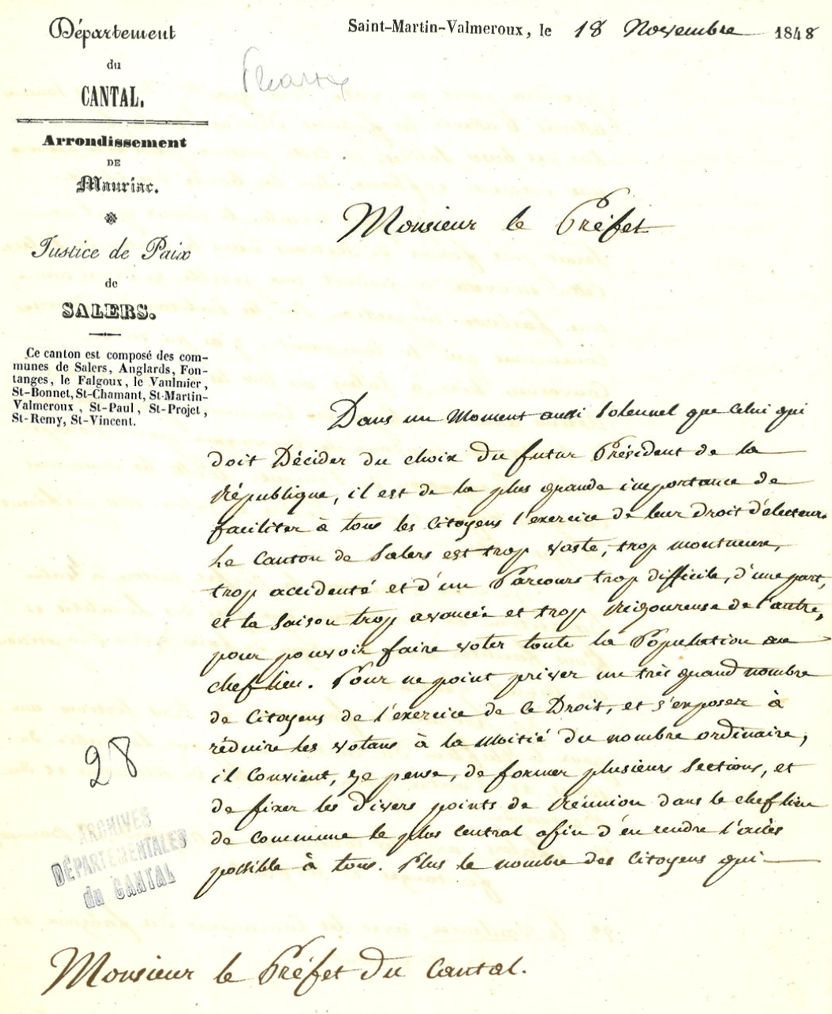 Département
du
CANTAL.
Arrondissement
DE
Mauriac.
Justice de Paix
de
SALERS.
Ce canton est composé des com-
munes de Salers, Anglards, Fon-
tanges, le Falgoux, le Vaulmier,
St-Bonnet, St-Chamant, St-Martin-
Valmeroux, St-Paul, St-Projet,
St-Remy, St-Vincent.
Saint-Martin-Valmeroux, le 18 Novembre 1848
Monsieur le Préfet
Dans un Moment aussi Solennel que Celui qui
doit Décider du choix du futur Président de la
République, il est de la plus grande importance de
faciliter à tous les Citoyens l'exercice de leur Droit d'électeur.
Le Canton de Salers est trop vaste, trop montueux,
trop accidenté et d'un Parcours trop difficile, d'une part,
et la Saison trop avancée et trop Rigoureuse de l'autre,
pour pouvoir faire voter toute la Population au
chef lieu. Pour ne point priver un très grand nombre
de Citoyens de l'exercice de ce Droit, et s'exposer à
réduire les votans à la Moitié du nombre ordinaire,
il Convient, je pense, de former plusieurs Sections, et
de fixer les Divers points de Réunion dans le chef lieu
de Commune le plus Central afin d'en rendre l'accès
possible à tous. Plus le nombre des Citoyens qui
28
ARCHIVES
DÉPARTEMENTALES
du CANTAL
Monsieur le Préfet Du Cantal.